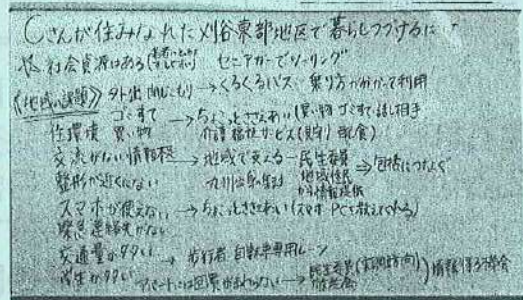 Cさんが住みなれた刈谷東部地区で暮らしつづけるに
社会資源はある セニアカーでツーリング
《地域の課題》 外出 閉じこもり → くるくるバス 乗り方が分かって利用
ゴミすて → ちょこっとささえあい(買い物 ゴミすて 話し相手
住環境 買い物 介護福祉サービス(見守り 配食)
交流がない 情報 → 地域で支える 民生委員 ⇒ 包括につなぐ
整形が近くにない 地域住民
から情報提供
スマホが使えない → ちょこっとささえあい(スマホ PC を教えてくれる)
緊急連絡先がない
交通量が多い → 歩行者 自転車専用レーン
アパートには回覧がまわらない → 民生委員